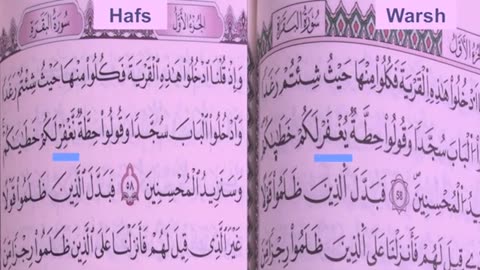 Hafs
سُورَةُ البَقَرَةِ
الجُزْءُ الأَوَّلُ
وَإِذْ قُلْنَا ٱدْخُلُوا۟ هَٰذِهِ ٱلْقَرْيَةَ فَكُلُوا۟ مِنْهَا حَيْثُ شِئْتُمْ رَغَدًا
وَٱدْخُلُوا۟ ٱلْبَابَ سُجَّدًا وَقُولُوا۟ حِطَّةٌ نَّغْفِرْ لَكُمْ خَطَٰيَٰكُمْ
وَسَنَزِيدُ ٱلْمُحْسِنِينَ ٥٨ فَبَدَّلَ ٱلَّذِينَ ظَلَمُوا۟
غَيْرَ ٱلَّذِى قِيلَ لَهُمْ فَأَنزَلْنَا عَلَى ٱلَّذِينَ ظَلَمُوا۟ رِجْزًا مِّنَ
Warsh
سُورَةُ البَقَرَةِ
الجُزْءُ الأَوَّلُ
ٱدْخُلُوا۟ هَٰذِهِ ٱلْقَرْيَةَ فَكُلُوا۟ مِنْهَا حَيْثُ شِئْتُمْ رَغَدًا
ٱلْبَابَ سُجَّدًا وَقُولُوا۟ حِطَّةٌ يُغْفَرْ لَكُمْ خَطَٰيَٰكُمْ
ٱلْمُحْسِنِينَ 58 فَبَدَّلَ ٱلَّذِينَ ظَلَمُوا۟ قَوْلًا
قِيلَ لَهُمْ فَأَنزَلْنَا عَلَى ٱلَّذِينَ ظَلَمُوا۟ رِجْزًا مِّنَ